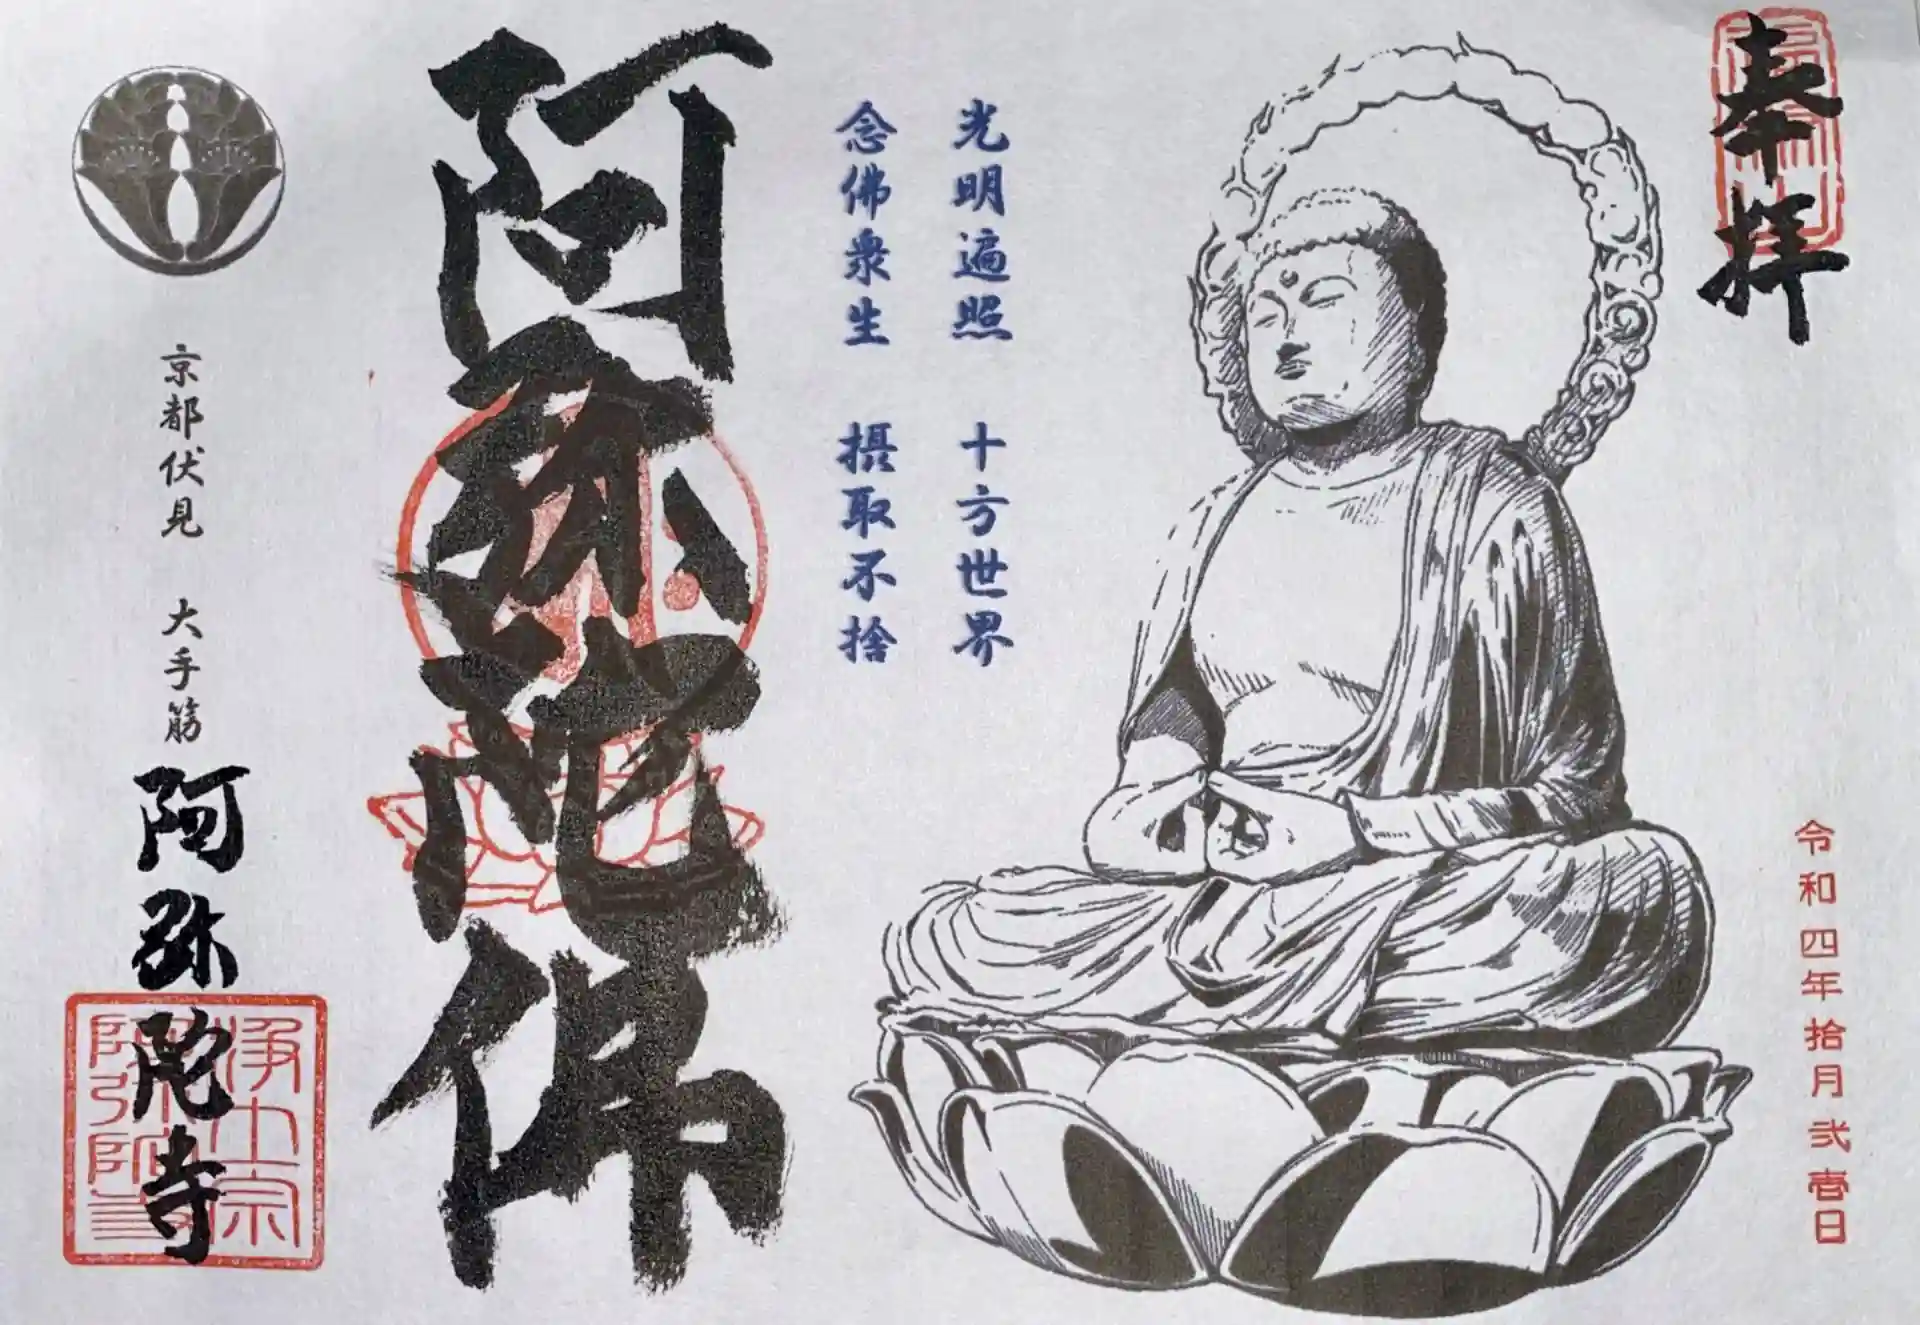 奉拝
令和四年拾月弐壱日
光明遍照 十方世界
念佛衆生 摂取不捨
阿弥陀佛
京都伏見 大手筋 阿弥陀寺
浄土宗